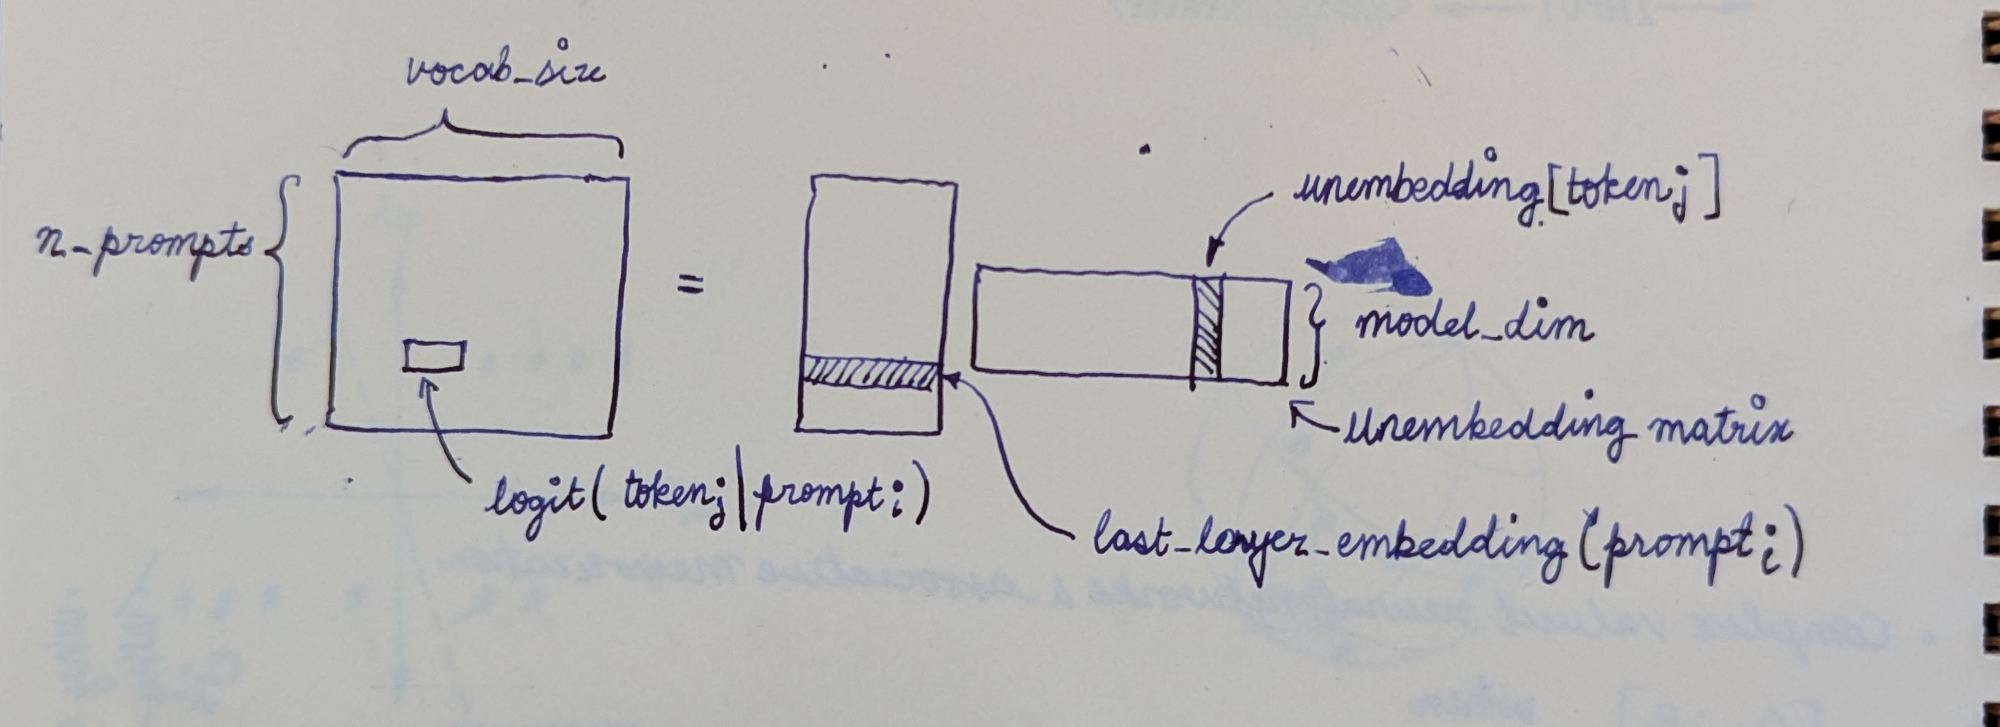 vocab_size
n_prompts
=
unembedding[token j]
model_dim
Unembedding matrix
logit(token j | prompt i)
last_layer_embedding(prompt i)